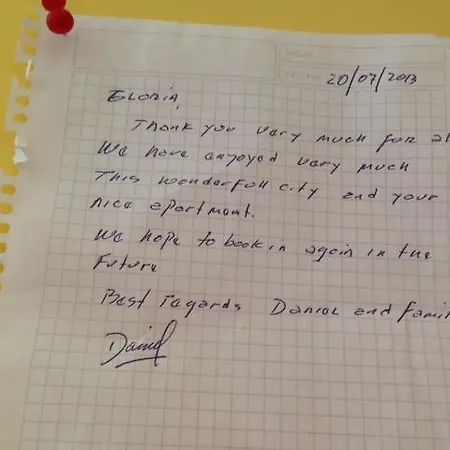 20/07/2013
GLORIA,
Thank you vary much for al
We have enjoyed vary much
This wonderfull city and your
nice apartment.
We hope to book in again in the
Future
Best regards Daniel and famil
Daniel